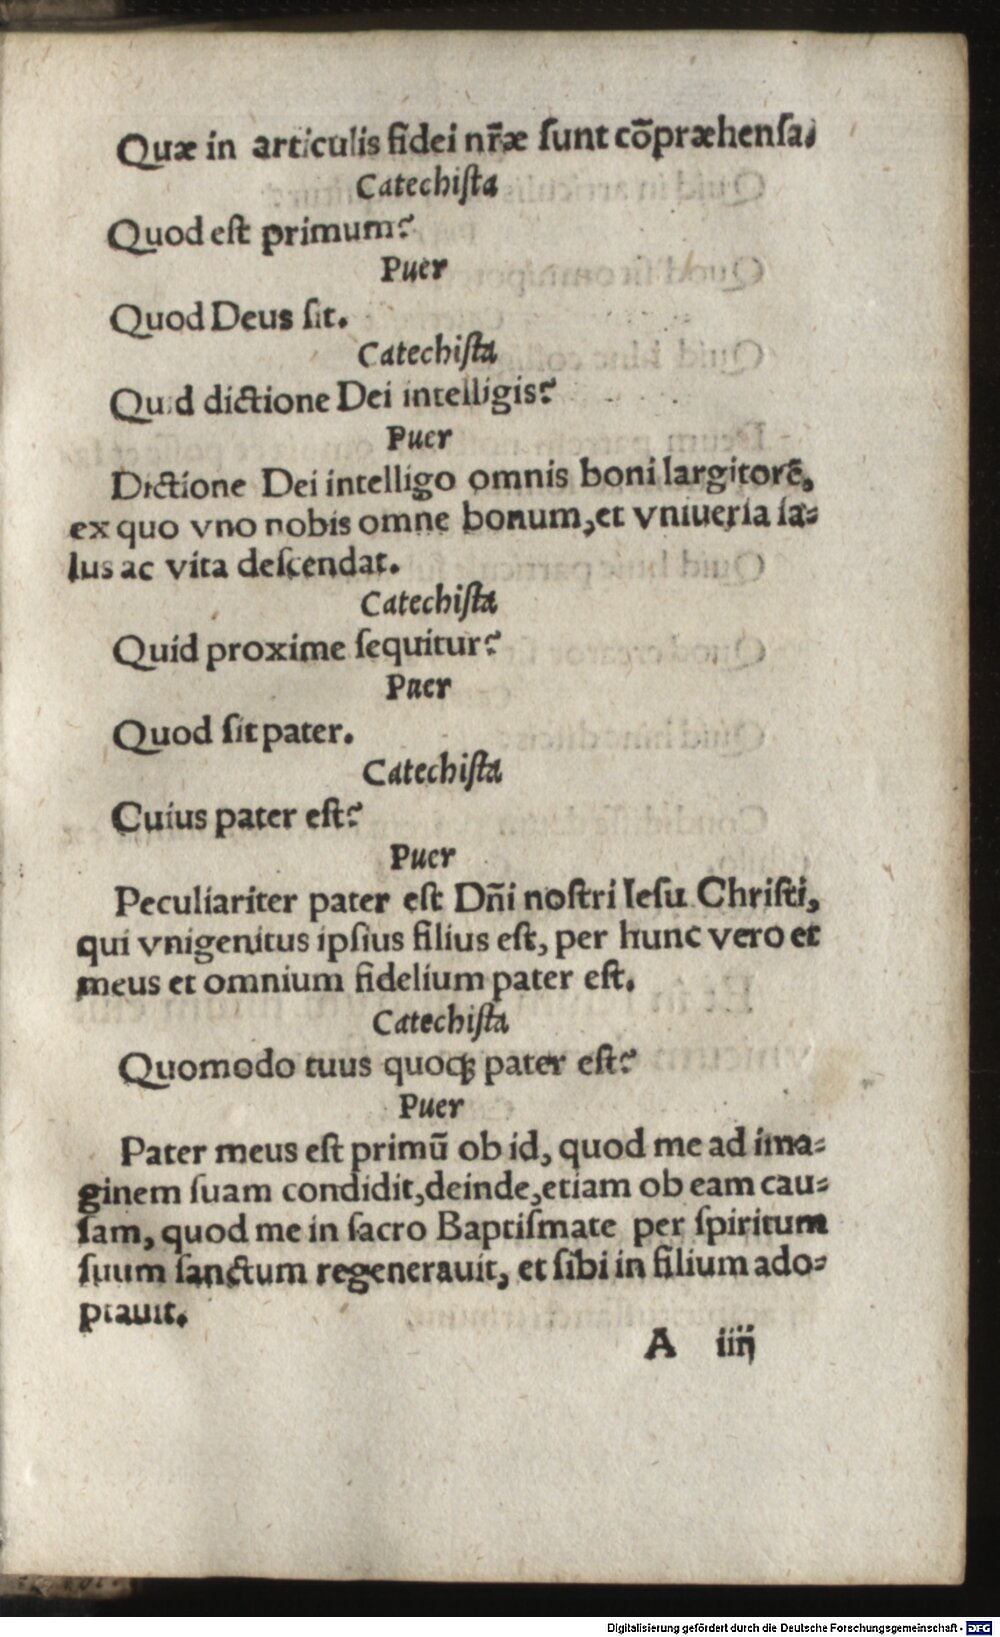 Quæ in articulis fidei nr̃æ ſunt cõpræhenſa.
Catechiſta
Quod est primum?
Puer
Quod Deus ſit.
Catechiſta
Quid dictione Dei intelligis?
Puer
Dictione Dei intelligo omnis boni largitorẽ,
ex quo vno nobis omne bonum, et vniuerſa ſa-
lus ac vita deſcendat.
Catechiſta
Quid proxime ſequitur?
Puer
Quod ſit pater.
Catechiſta
Cuius pater eſt?
Puer
Peculiariter pater eſt Dñi noſtri Ieſu Chriſti,
qui vnigenitus ipſius filius eſt, per hunc vero et
meus et omnium fidelium pater eſt.
Catechiſta
Quomodo tuus quoqꝫ pater eſt?
Puer
Pater meus eſt primũ ob id, quod me ad ima-
ginem ſuam condidit, deinde, etiam ob eam cau-
ſam, quod me in ſacro Baptiſmate per ſpiritum
ſuum ſanctum regenerauit, et ſibi in filium ado-
ptauit.
A iiij
Digitalisierung gefördert durch die Deutsche Forschungsgemeinschaft - DFG